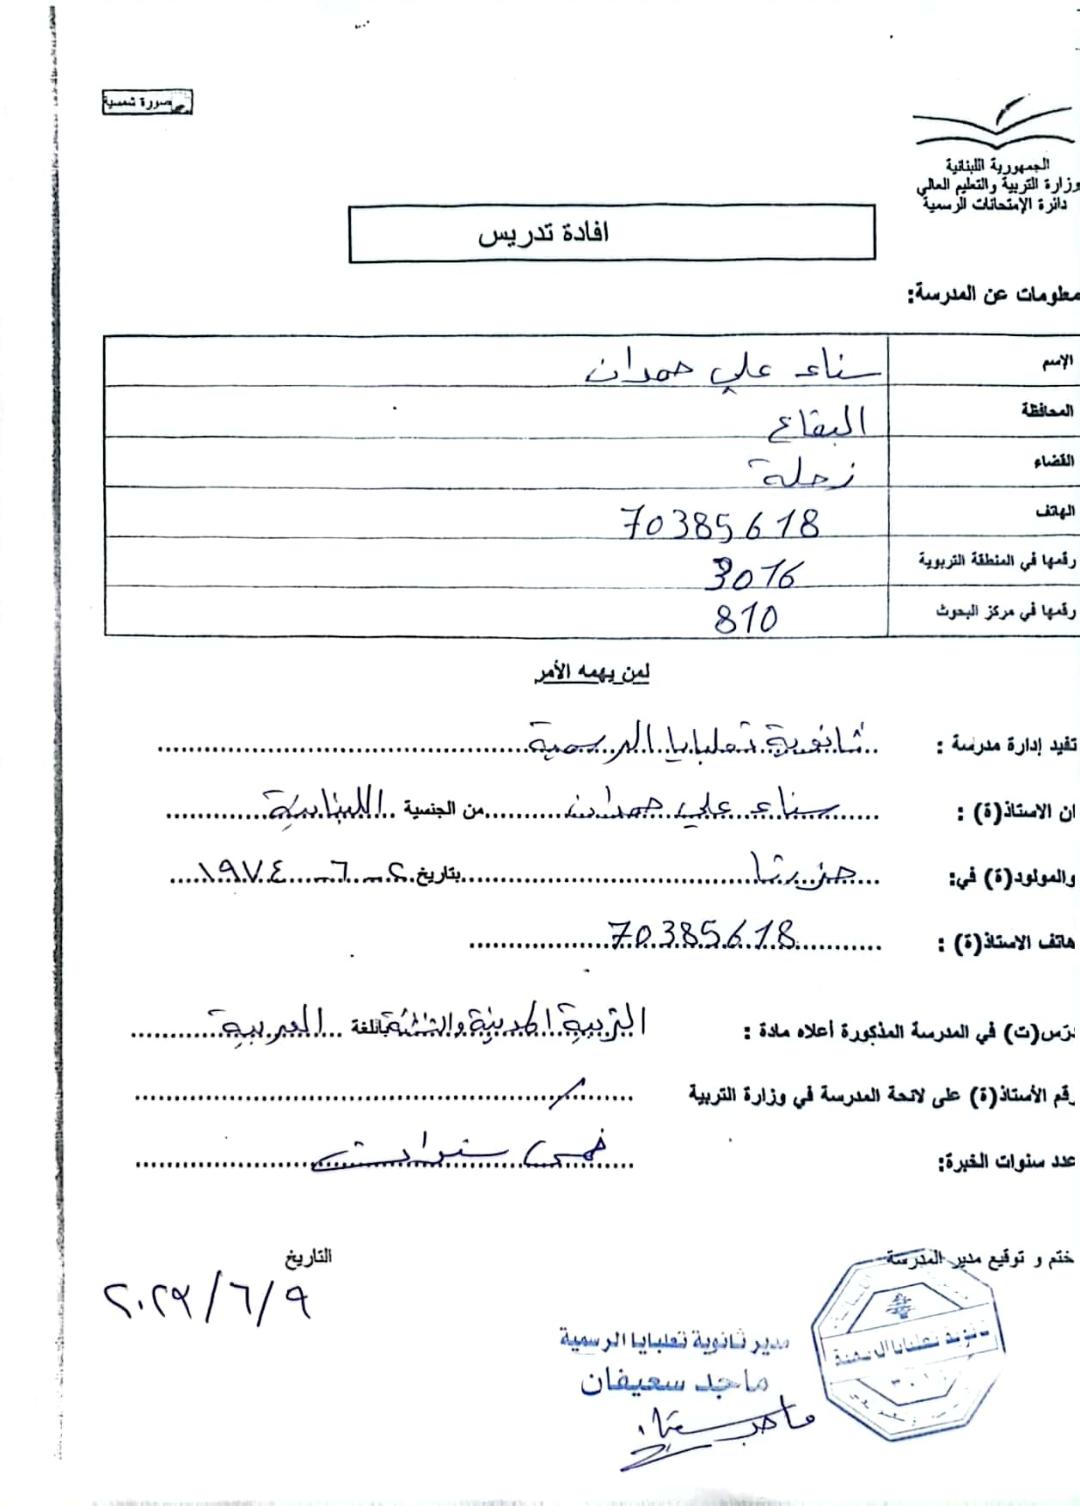 صورة شمسية
الجمهورية اللبنانية
وزارة التربية والتعليم العالي
دائرة الإمتحانات الرسمية
افادة تدريس
معلومات عن المدرسة:
الإسم سناء علي حمدان
المحافظة البقاع
القضاء زحلة
الهاتف 70385618
رقمها في المنطقة التربوية 3016
رقمها في مركز البحوث 810
لمن يهمه الأمر
تفيد إدارة مدرسة : ثانوية تعلبايا الرسمية
ان الاستاذ(ة) : سناء علي حمدان من الجنسية اللبنانية
والمولود(ة) في: جزرتا بتاريخ ٢ - ٦ - ١٩٧٤
هاتف الاستاذ(ة) : 70385618
درّس(ت) في المدرسة المذكورة أعلاه مادة : التربية المدنية والتنشئة باللغة العربية
رقم الأستاذ(ة) على لائحة المدرسة في وزارة التربية /
عدد سنوات الخبرة: خمس سنوات
ختم و توقيع مدير المدرسة التاريخ
٩/٦/٢٠٢٣
مدير ثانوية تعلبايا الرسمية
ماجد سعيفان
ثانوية تعلبايا الرسمية
٣٠١٦